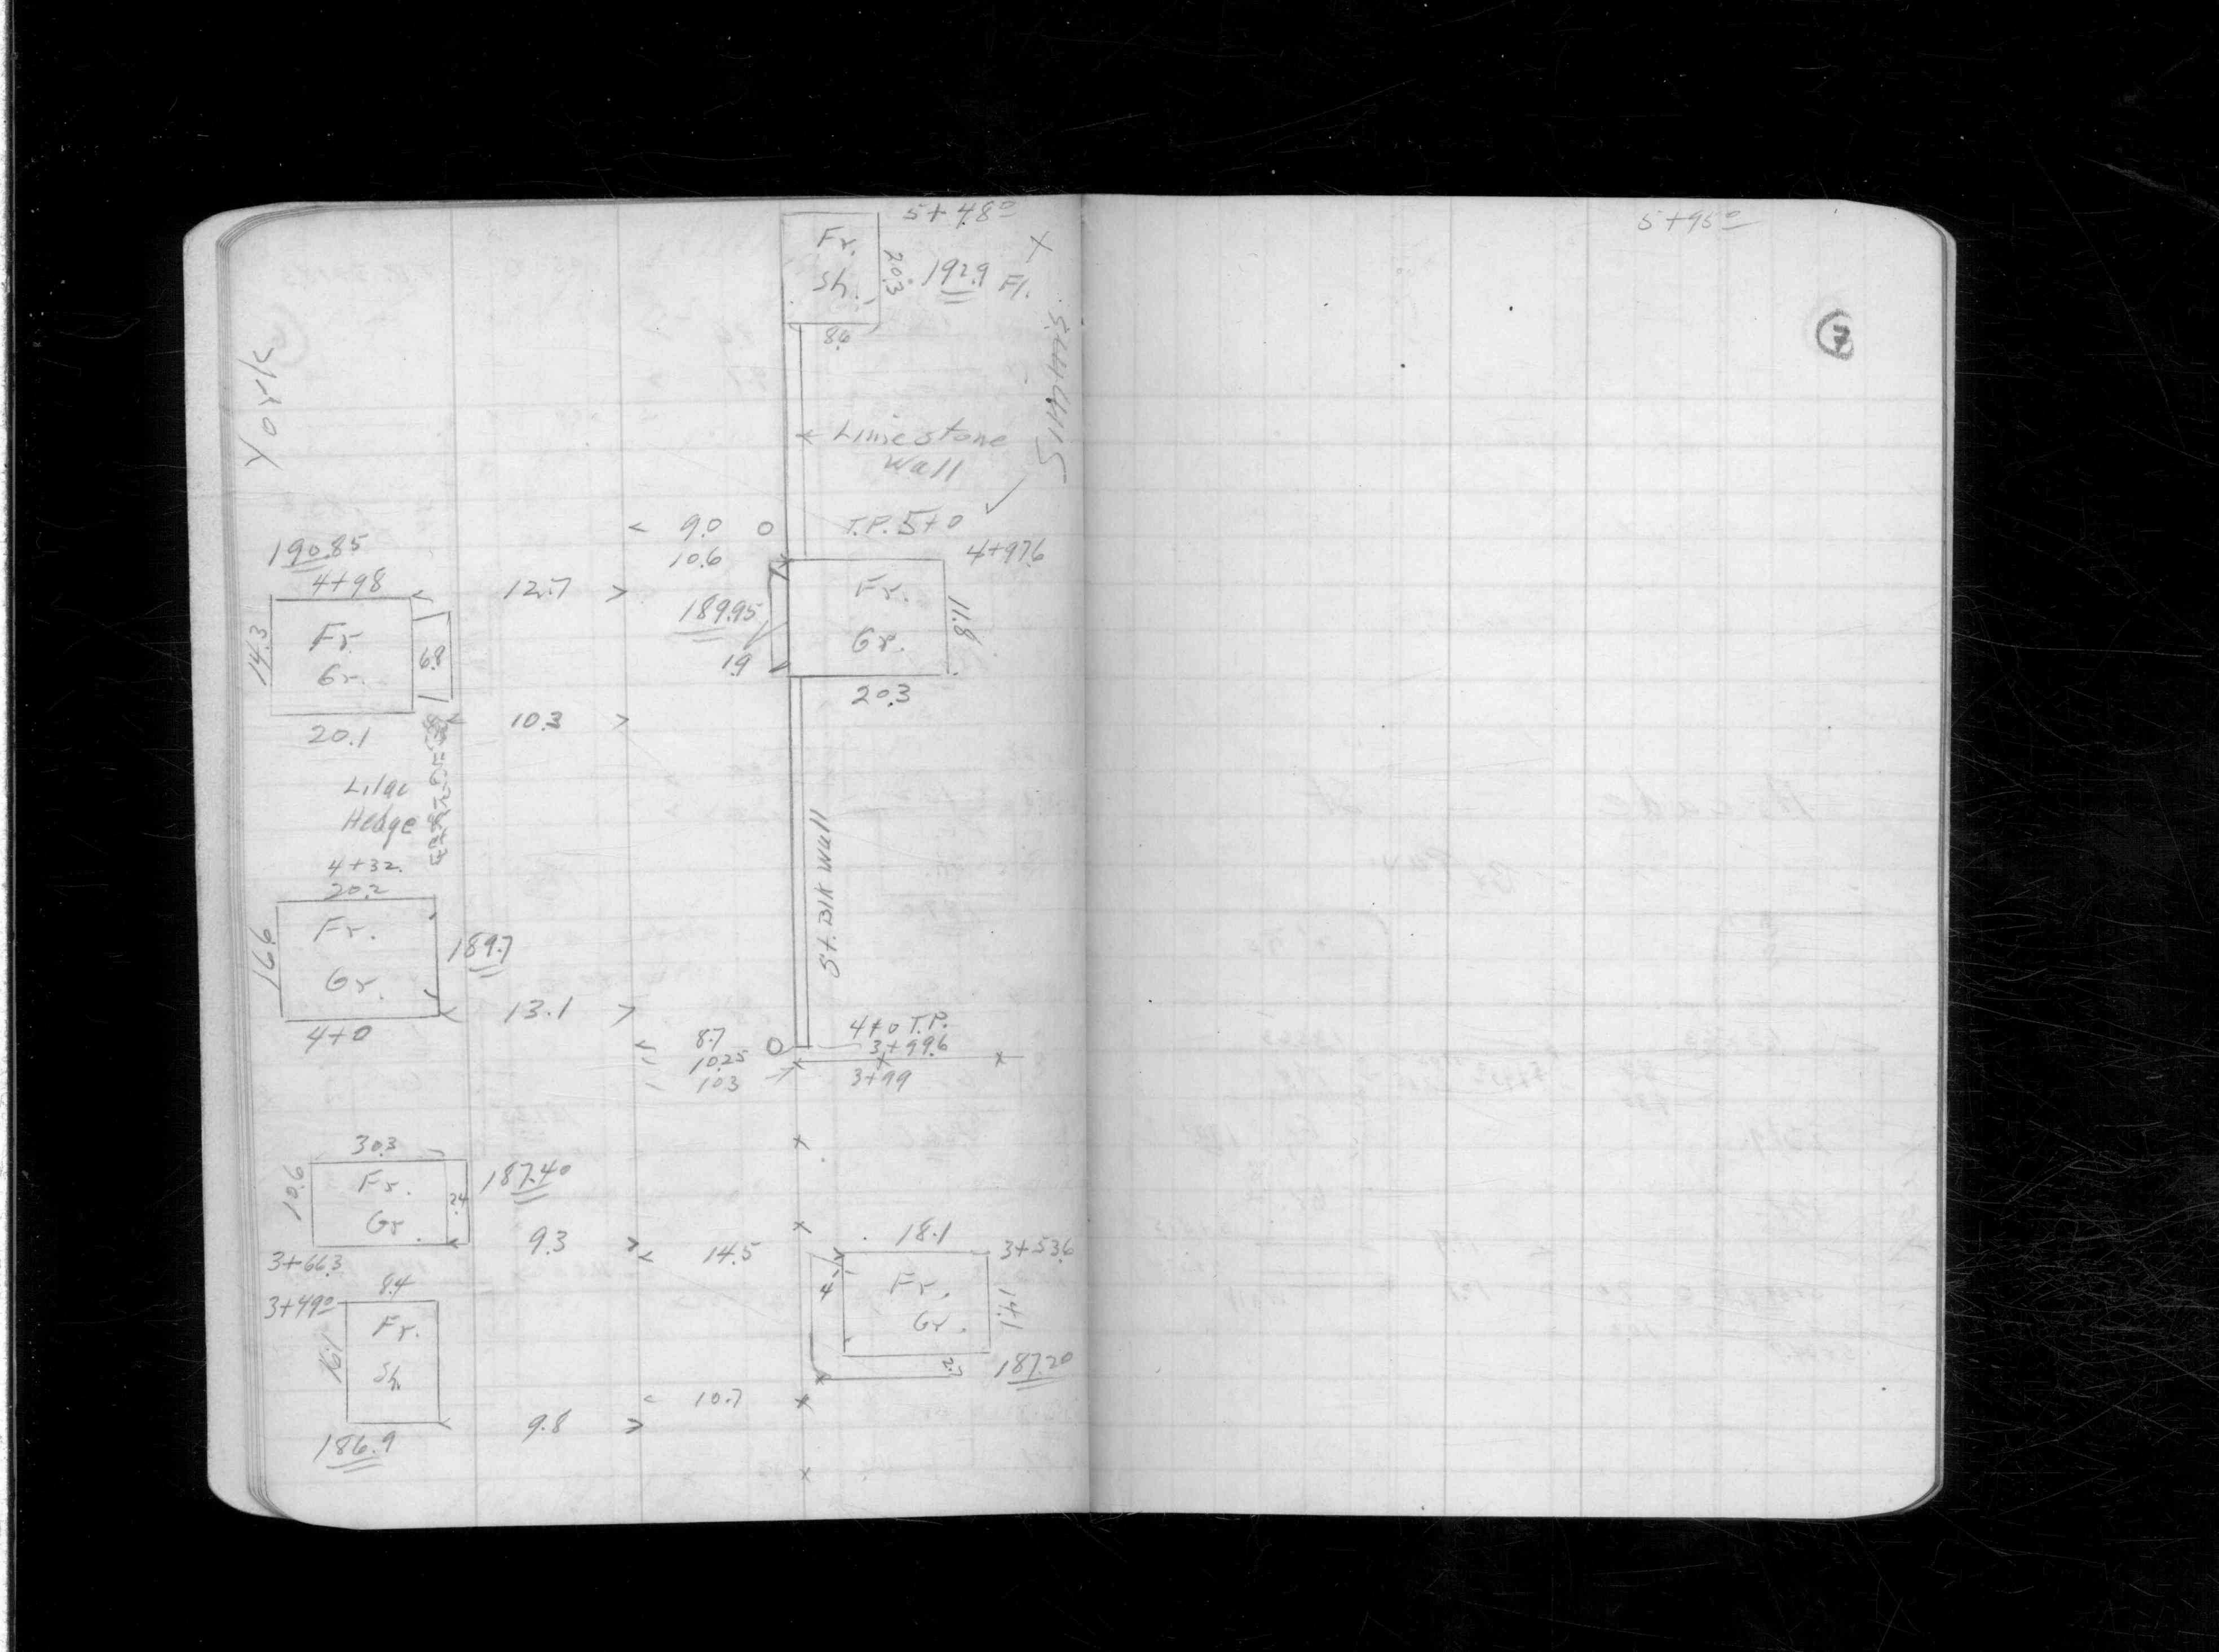 5+48⁰
Fr.
Sh.
20.3
192.9 Fl.
8.6
York
Simms.
Limestone
Wall
9.0
T.P. 5+0
10.6
4+97.6
190.85
4+98
12.7
Fr.
Gr.
14.3
6.8
189.95
1.9
Fr.
Gr.
11.8
20.3
20.1
10.3
Lilac
Hedge
4+32.
20.2
St. Blk Wall
Fr.
Gr.
16.6
189.7
4+0
13.1
8.7
4+0 T.P.
3+99.6
10.25
10.3
3+99
30.3
Fr.
Gr.
10.6
2.4
187.40
3+66.3
9.3
14.5
18.1
3+53.6
4
Fr.
Gr.
14.1
187.20
8.4
3+49⁰
Fr.
Sh.
16.1
186.9
9.8
10.7
5+95⁰
7